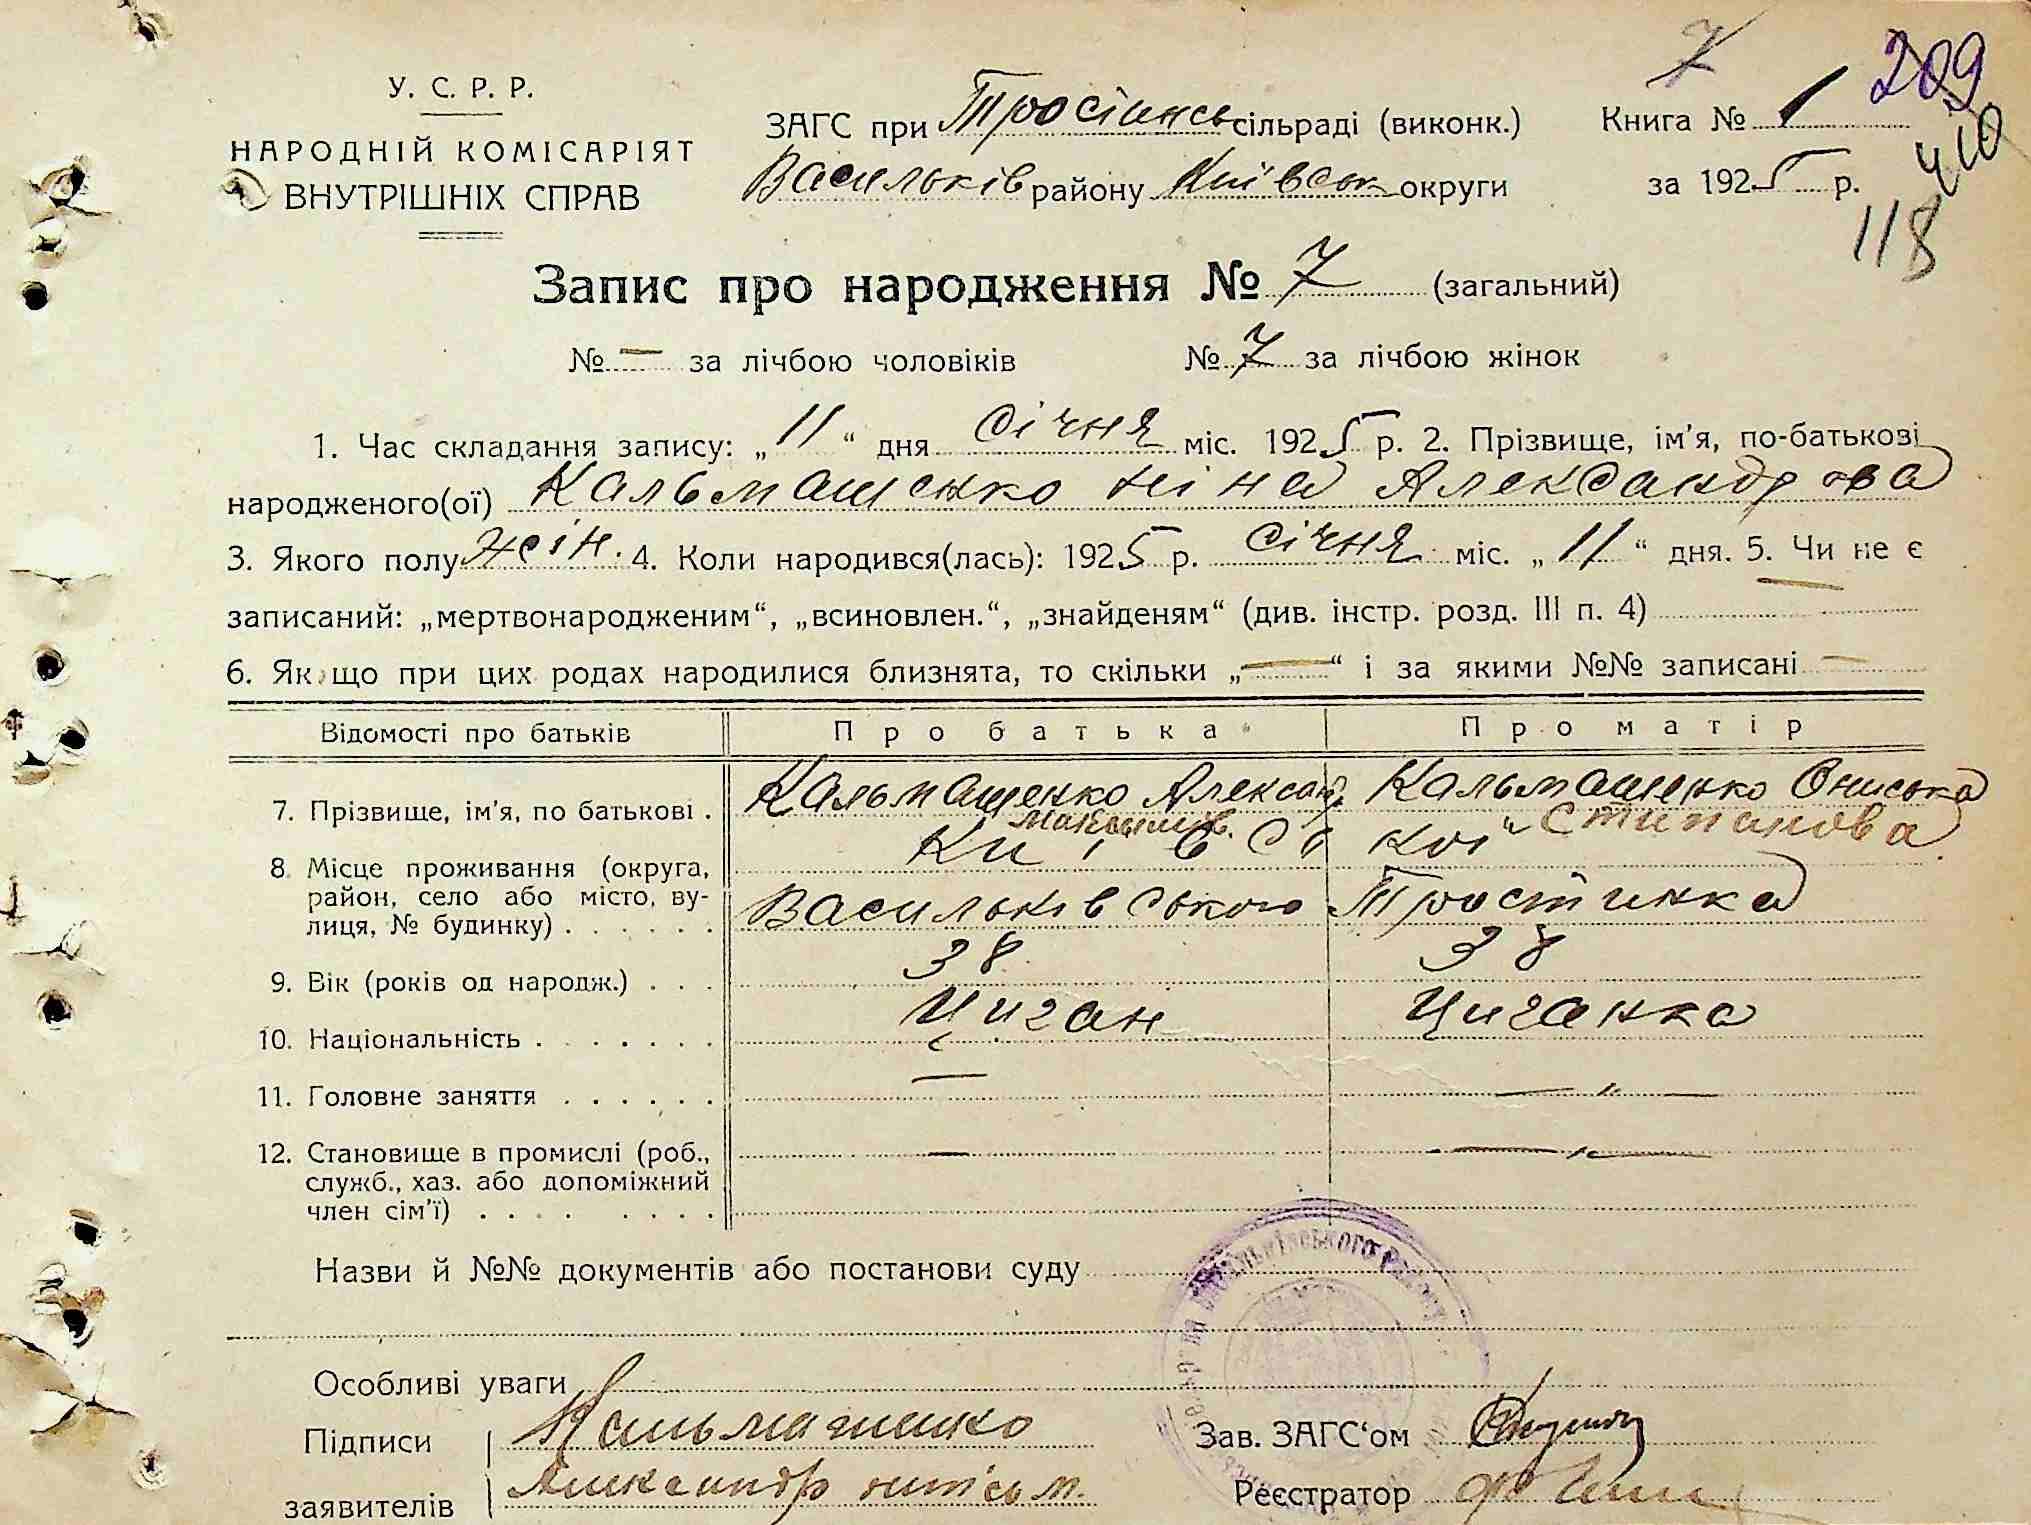 7 209
У. С. Р. Р.
НАРОДНІЙ КОМІСАРІЯТ
ВНУТРІШНІХ СПРАВ
ЗАГС при Тросінсь сільраді (виконк.) Книга № 1
410
Васильків району Київськ округи за 1925 р.
118
Запис про народження № 7 (загальний)
№ — за лічбою чоловіків № 7 за лічбою жінок
1. Час складання запису: „11“ дня Січня міс. 1925 р. 2. Прізвище, ім'я, по-батькові
народженого(ої) Кальмашенко Ніна Александрова
3. Якого полу жін. 4. Коли народився(лась): 1925 р. Січня міс. „11“ дня. 5. Чи не є
записаний: „мертвонародженим“, „всиновлен.“, „знайденям“ (див. інстр. розд. III п. 4) —
6. Якщо при цих родах народилися близнята, то скільки „—“ і за якими №№ записані —
Відомості про батьків Про батька Про матір
7. Прізвище, ім'я, по батькові . Кальмашенко Александ Кальмашенко Ониська
Максимов. Стипанова
8 Місце проживання (округа, Київської
район, село або місто, ву- Васильківського Тростинка
лиця, № будинку) . . . . . .
9. Вік (років од народж.) . . . 38 38
10. Національність . . . . . . . Циган Циганка
11. Головне заняття . . . . . . — — „ —
12. Становище в промислі (роб., — — „ —
служб., хаз. або допоміжний
член сім'ї) . . . . . . . .
Назви й №№ документів або постанови суду
Васильківського
Особливі уваги
Підписи Кальмашенко Зав. ЗАГС‘ом
заявителів Александр Реєстратор